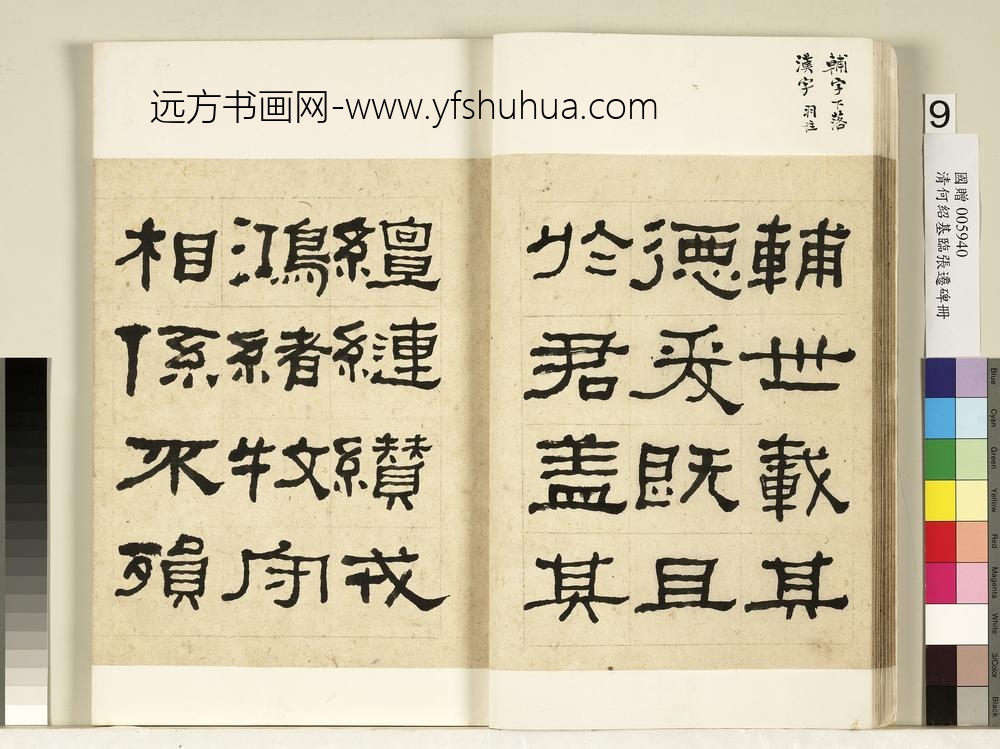 远方书画网-www.yfshuhua.com
輔字下落
漢字
輔世載其
德爰既且
於君盖其
繵縺纘戎
鴻緒牧守
相係不殞
9
國贈 005940
清何紹基臨張遷碑冊
Blue
Cyan
Green
Yellow
Red
Magenta
White
3/Color
Black